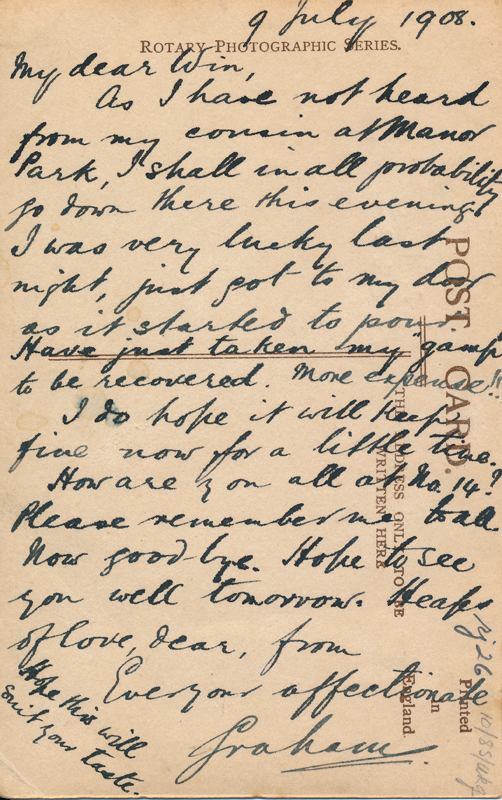 9 July 1908.
ROTARY PHOTOGRAPHIC SERIES.
My dear Win,
As I have not heard
from my cousin at Manor
Park, I shall in all probability
go down there this evening.
I was very lucky last
night, just got to my door
as it started to pour.
Have just taken my "gamp"
to be recovered. More expense!!
I do hope it will keep
fine now for a little time.
How are you all at No. 14?
Please remember me to all.
Now good-bye. Hope to see
you well tomorrow. Heaps
of love, dear, from
Ever your affectionate
Graham.
Hope this will
suit your taste.
POST CARD.
THE ADDRESS ONLY TO BE
WRITTEN HERE
Printed
in
England.